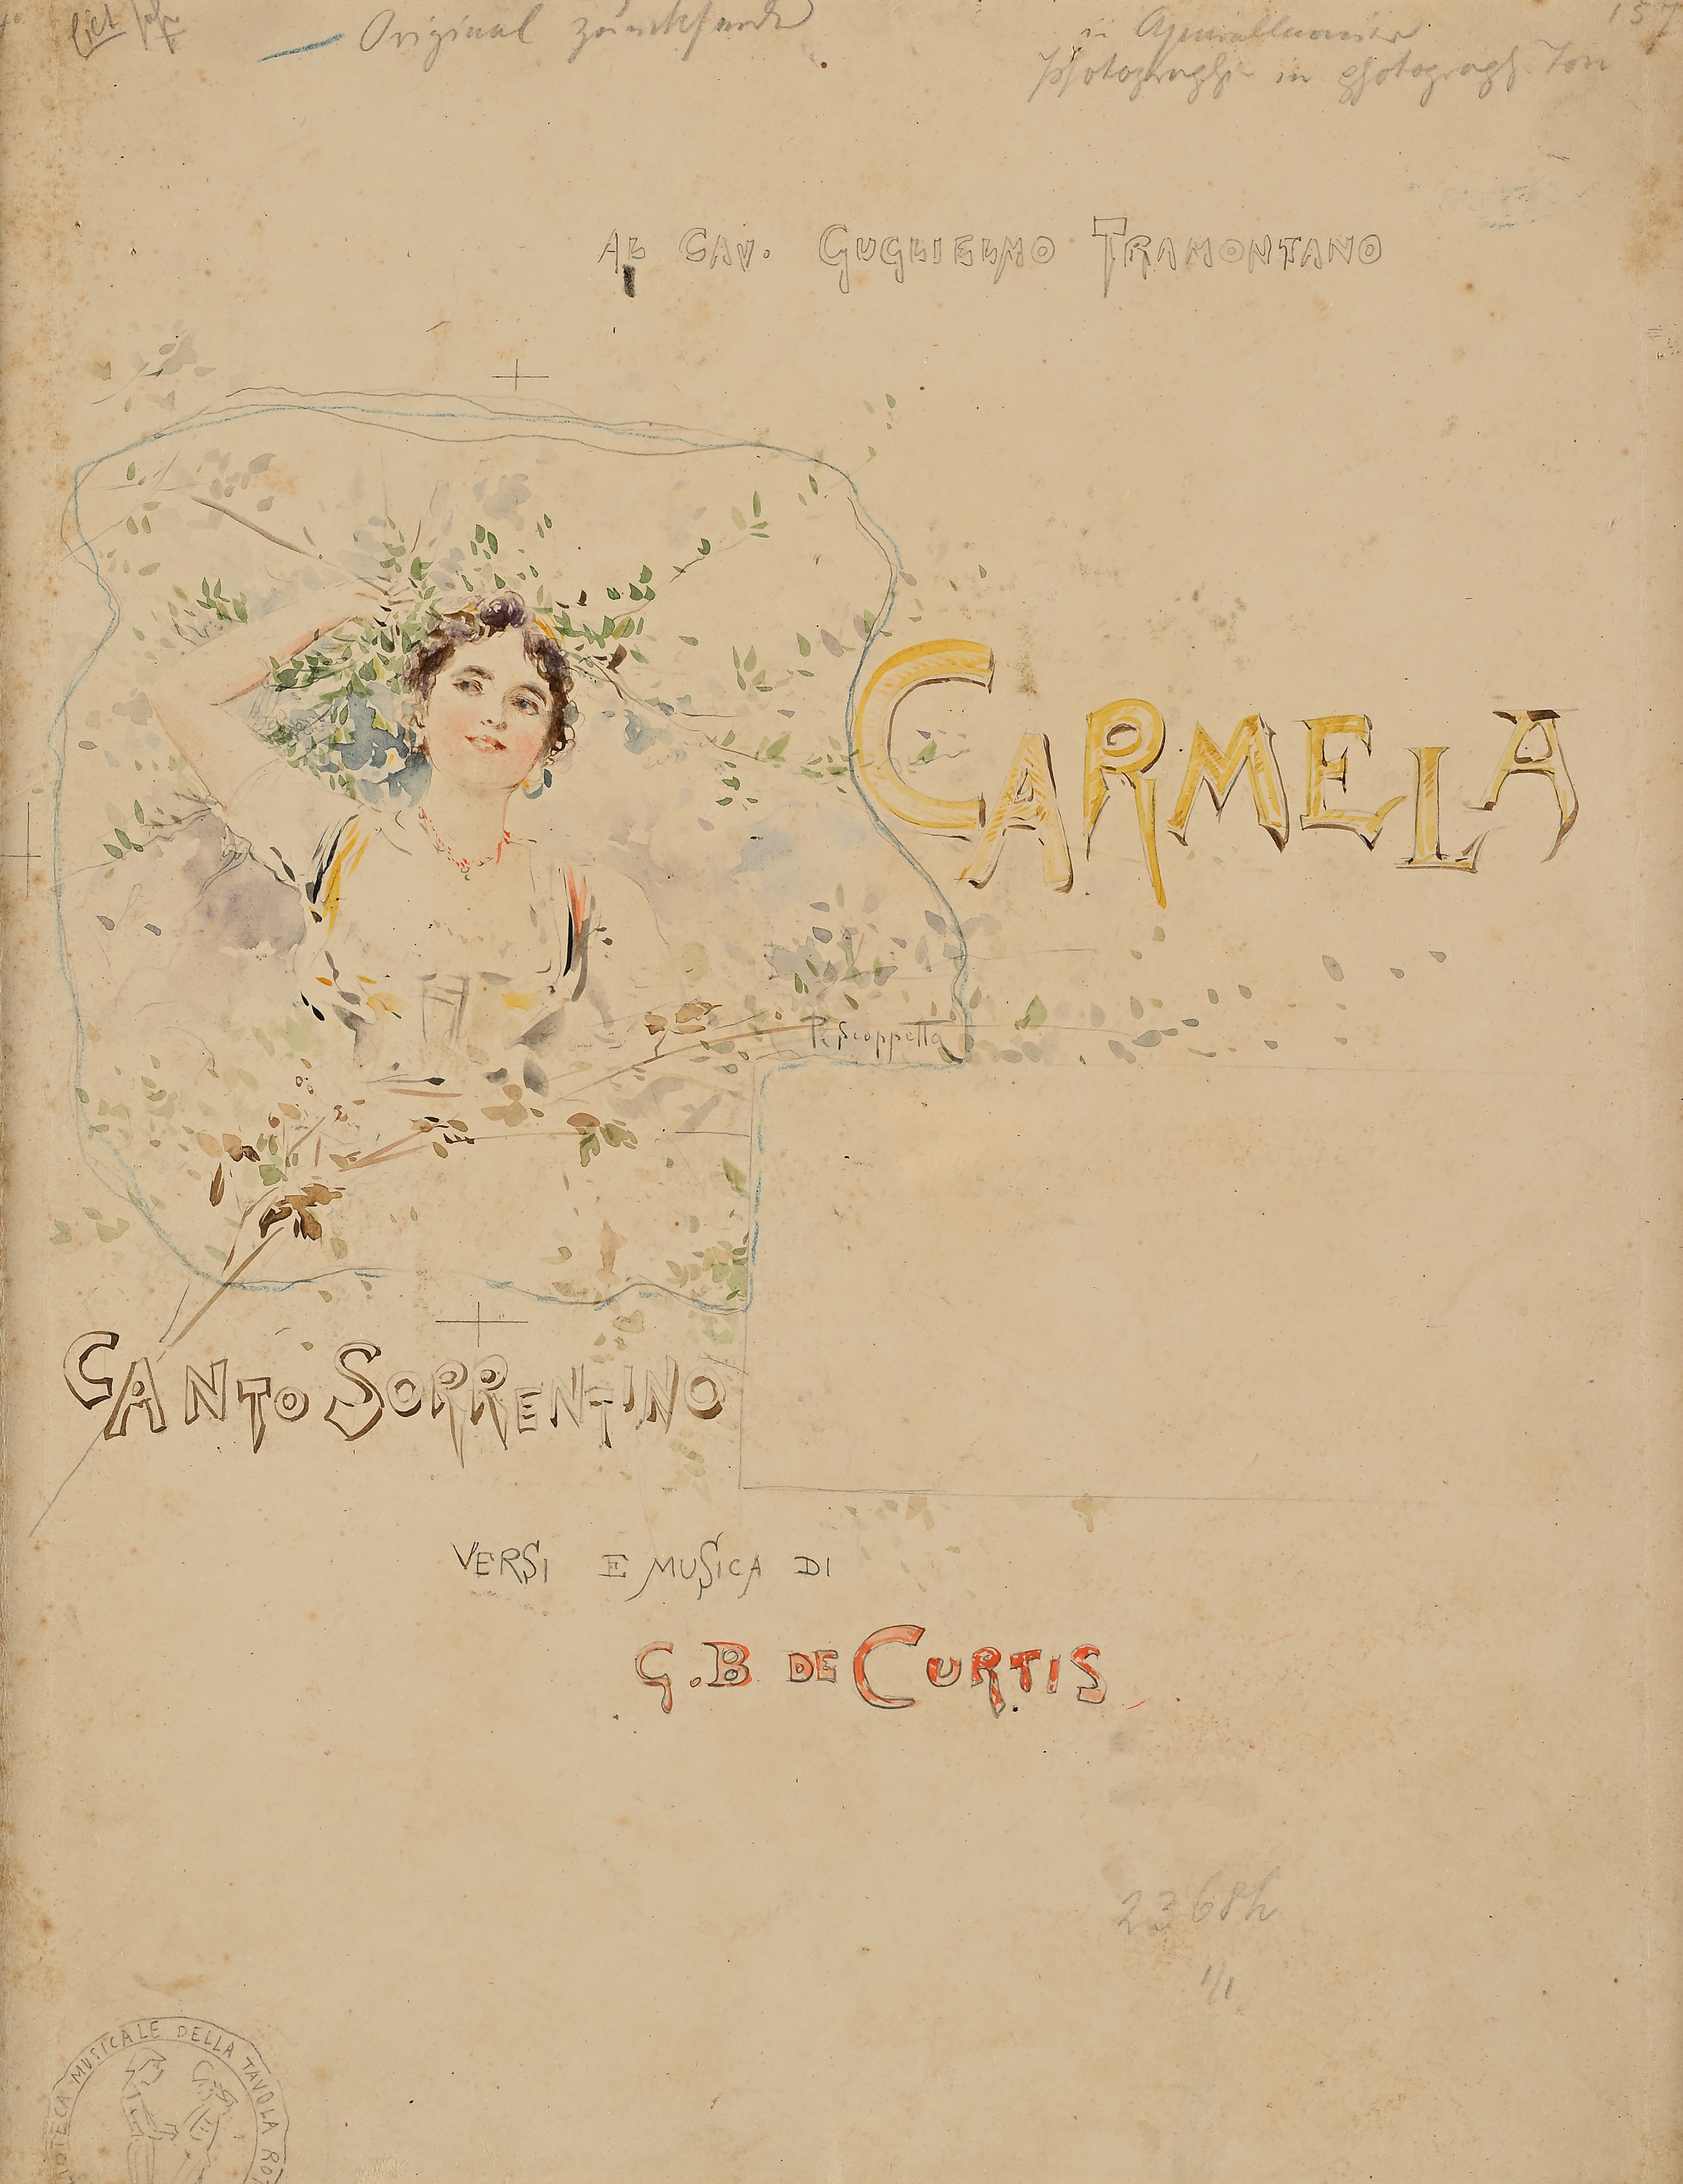 Original
157
in
Photographie in photograph. Ton
AL CAV. GUGLIELMO TRAMONTANO
CARMELA
P. Scoppetta
CANTO SORRENTINO
VERSI E MUSICA DI
G.B DE CURTIS
2368h
1/1
IOTECA MUSICALE DELLA TAVOLA ROT